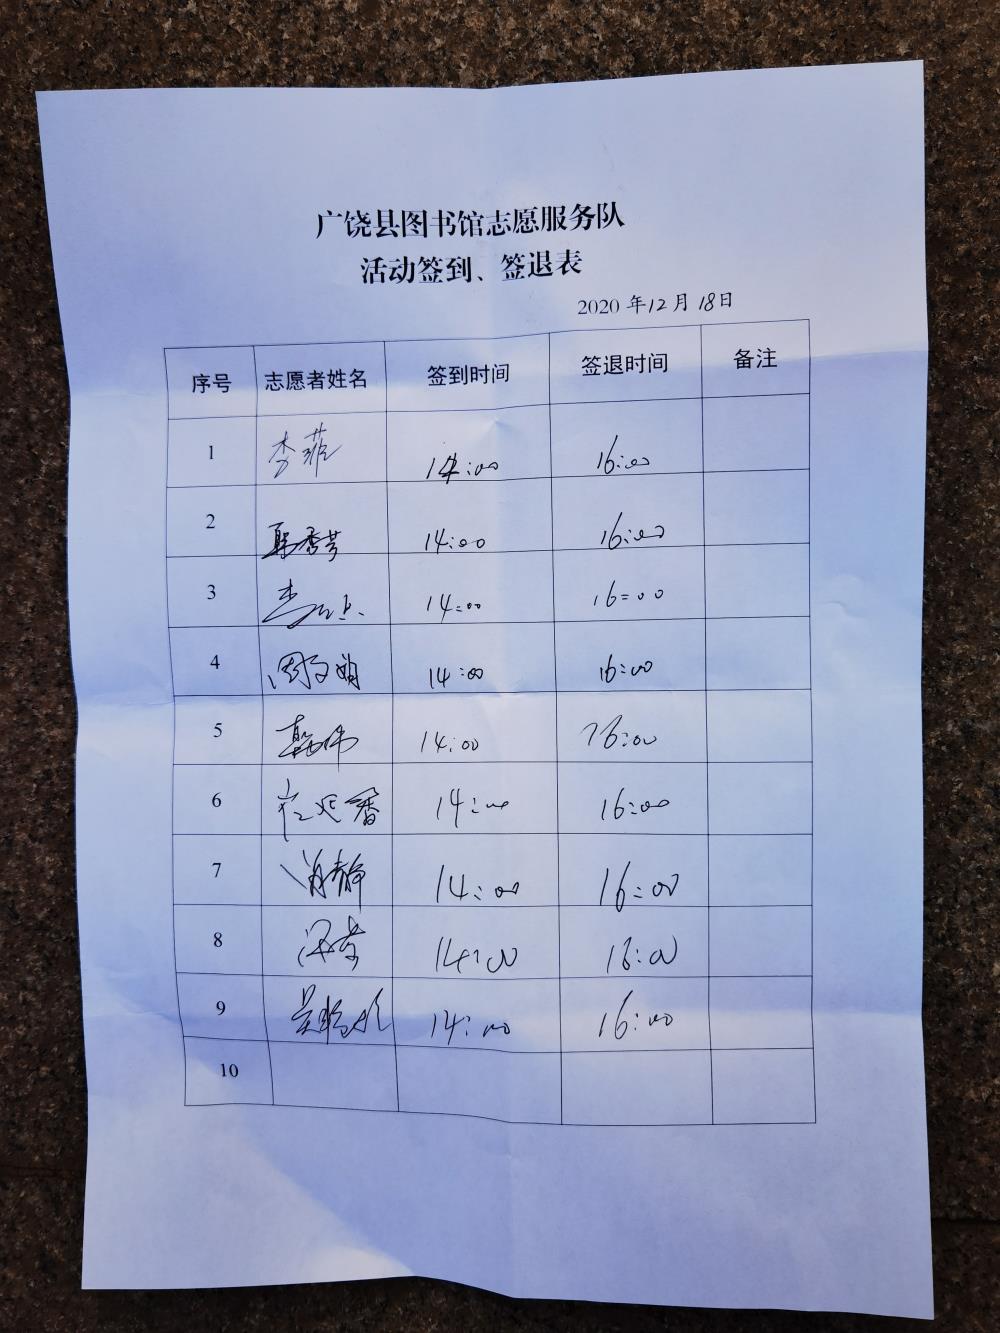 广饶县图书馆志愿服务队
活动签到、签退表
2020 年12月 18日
序号 志愿者姓名 签到时间 签退时间 备注
1 李菲 14:00 16:00
2 14:00 16:00
3 14:00 16:00
4 周文娟 14:00 16:00
5 14:00 16:00
6 14:00 16:00
7 肖静 14:00 16:00
8 14:00 16:00
9 14:00 16:00
10